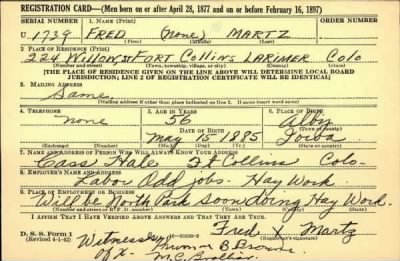 REGISTRATION CARD—(Men born on or after April 28, 1877 and on or before February 16, 1897)
SERIAL NUMBER 1. NAME (Print) ORDER NUMBER
U 1739 FRED (none) MARTZ
(First) (Middle) (Last)
2. PLACE OF RESIDENCE (Print)
224 Willow St Fort Collins LARIMER Colo
(Number and street) (Town, township, village, or city) (County) (State)
[THE PLACE OF RESIDENCE GIVEN ON THE LINE ABOVE WILL DETERMINE LOCAL BOARD
JURISDICTION; LINE 2 OF REGISTRATION CERTIFICATE WILL BE IDENTICAL]
3. MAILING ADDRESS
Same
(Mailing address if other than place indicated on line 2. If same insert word same)
4. TELEPHONE 5. AGE IN YEARS 6. PLACE OF BIRTH
none 56 Alby
DATE OF BIRTH (Town or county)
May 15 1885 Iowa
(Exchange) (Number) (Mo.) (Day) (Yr.) (State or country)
7. NAME AND ADDRESS OF PERSON WHO WILL ALWAYS KNOW YOUR ADDRESS
Cass Hale Ft Collins Colo-
8. EMPLOYER'S NAME AND ADDRESS
Labor Odd jobs- Hay Work
9. PLACE OF EMPLOYMENT OR BUSINESS
Will be North Park soon doing Hay Work.
(Number and street or R. F. D. number) (Town) (County) (State)
I AFFIRM THAT I HAVE VERIFIED ABOVE ANSWERS AND THAT THEY ARE TRUE.
D. S. S. Form 1
(Revised 4-1-42) 16—21630-2
Fred X Martz
(Registrant's signature)
Witness by
of X- B Brown
M.C.